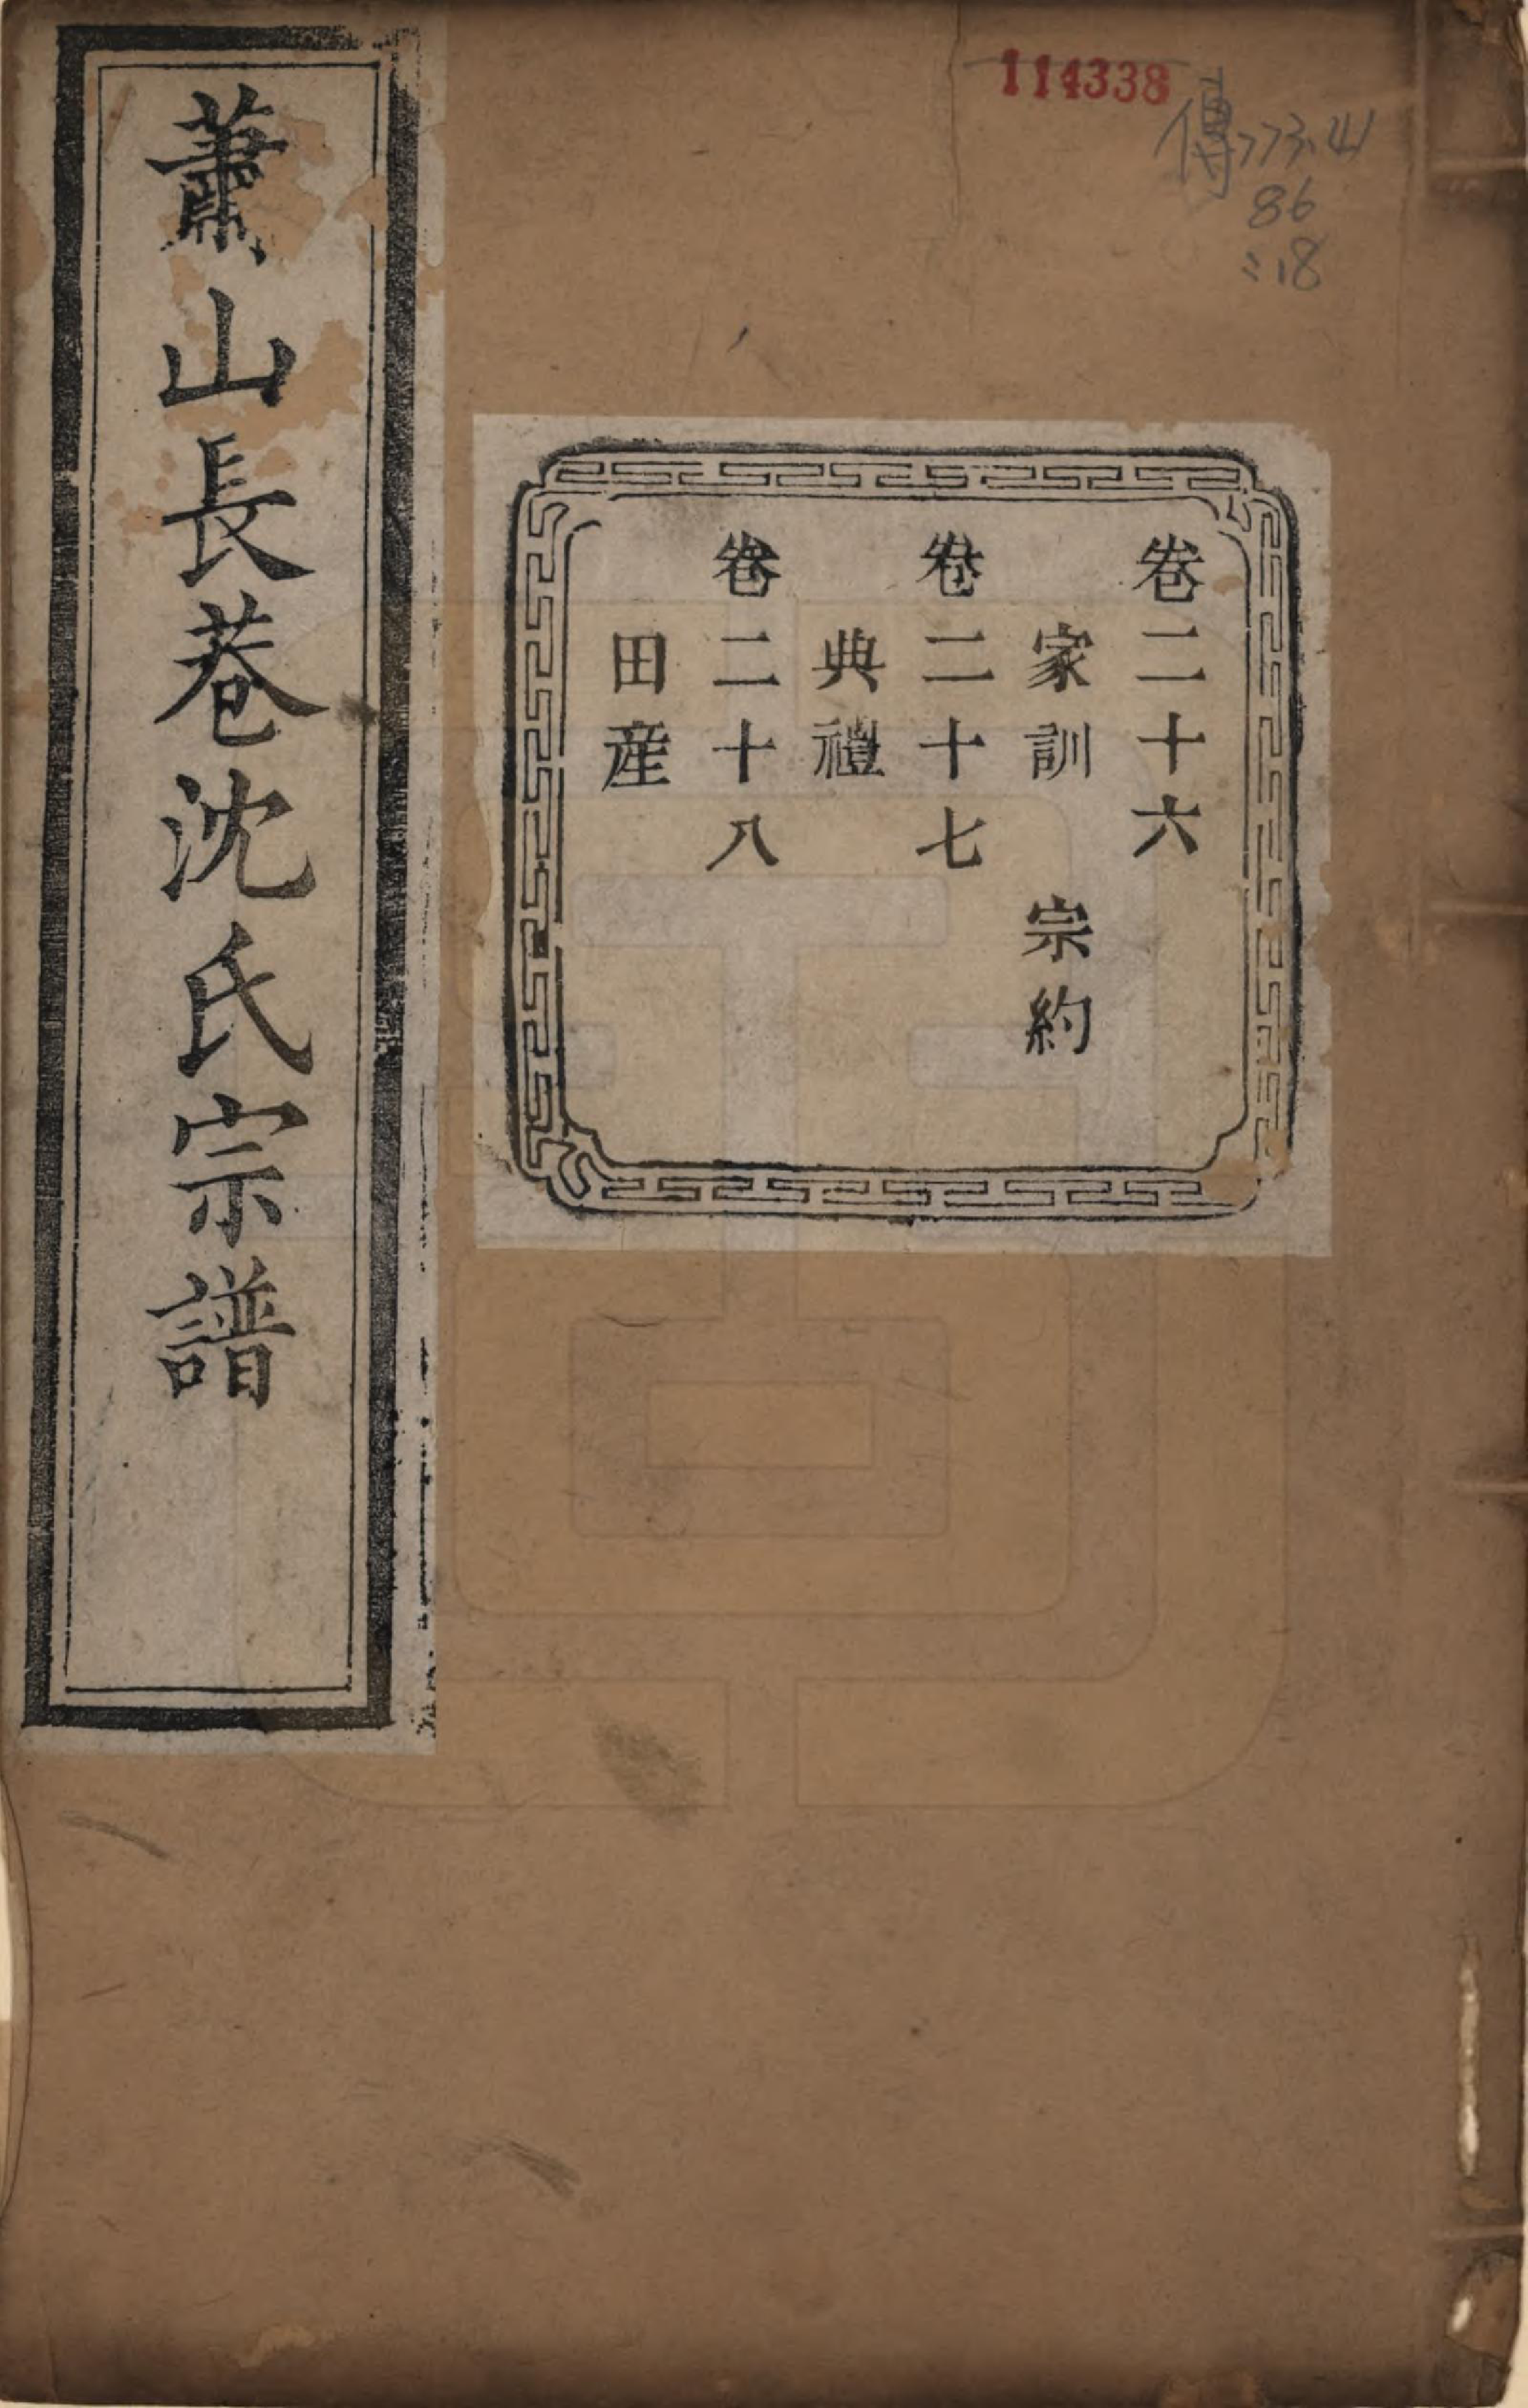 114338
傳773.41
86
:18
卷二十六
家訓 宗約
卷二十七
典禮
卷二十八
田産
蕭山長巷沈氏宗譜